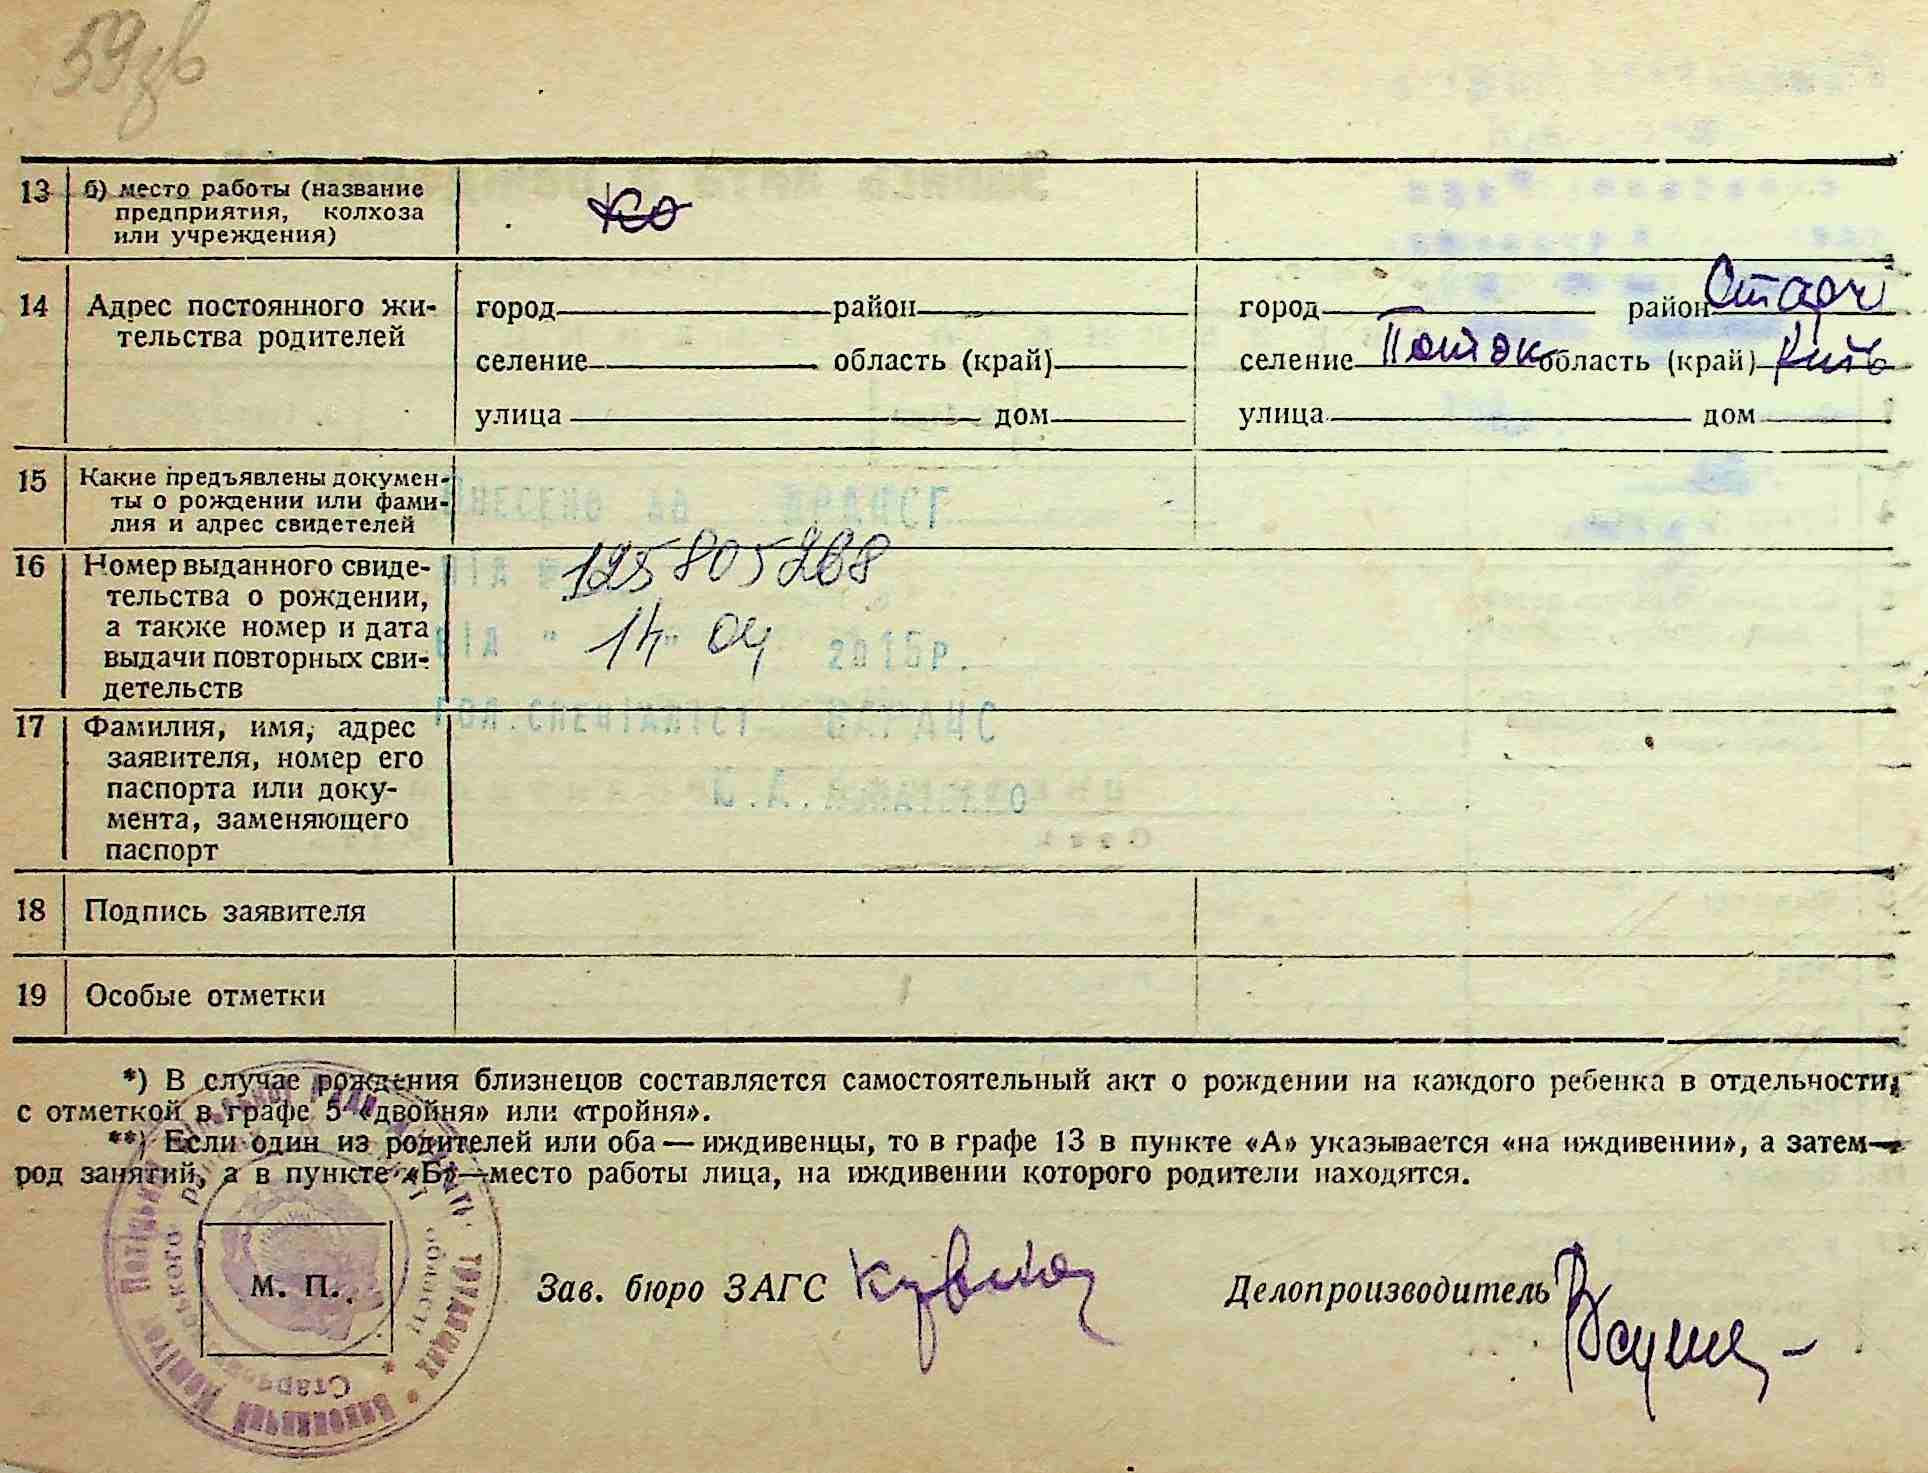 59зв
13 б) место работы (название
предприятия, колхоза
или учреждения)
14 Адрес постоянного жи-
тельства родителей
город район город район Старч
селение область (край) селение Поток область (край) Київ
улица дом улица дом
15 Какие предъявлены докумен-
ты о рождении или фами-
лия и адрес свидетелей
ВНЕСЕНО ДО ДРАЦСГ
16 Номер выданного свиде-
тельства о рождении,
а также номер и дата
выдачи повторных сви-
детельств
ВІД
ВІД " 14 " 04 2015р.
17 Фамилия, имя, адрес
заявителя, номер его
паспорта или доку-
мента, заменяющего
паспорт
ГОЛ.СПЕЦІАЛІСТ
Ю.А.
18 Подпись заявителя
19 Особые отметки
*) В случае рождения близнецов составляется самостоятельный акт о рождении на каждого ребенка в отдельности,
с отметкой в графе 5 «двойня» или «тройня».
**) Если один из родителей или оба — иждивенцы, то в графе 13 в пункте «А» указывается «на иждивении», а затем—
род занятий, а в пункте «Б»—место работы лица, на иждивении которого родители находятся.
М. П.
Зав. бюро ЗАГС
Делопроизводитель
Виконавчий Комітет
трудящих
області